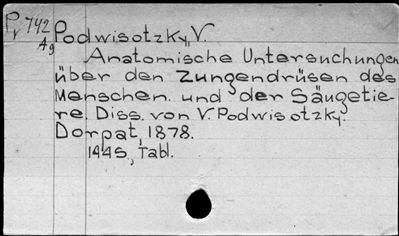 Pr 742 Podwisotzky, V.
Ag
Anatomische Untersuchungen
über den Zungendrüsen des
Menschen und der Säugetie-
re. Diss. von V. Podwisotzky.
Dorpat, 1878.
144S, Tabl.